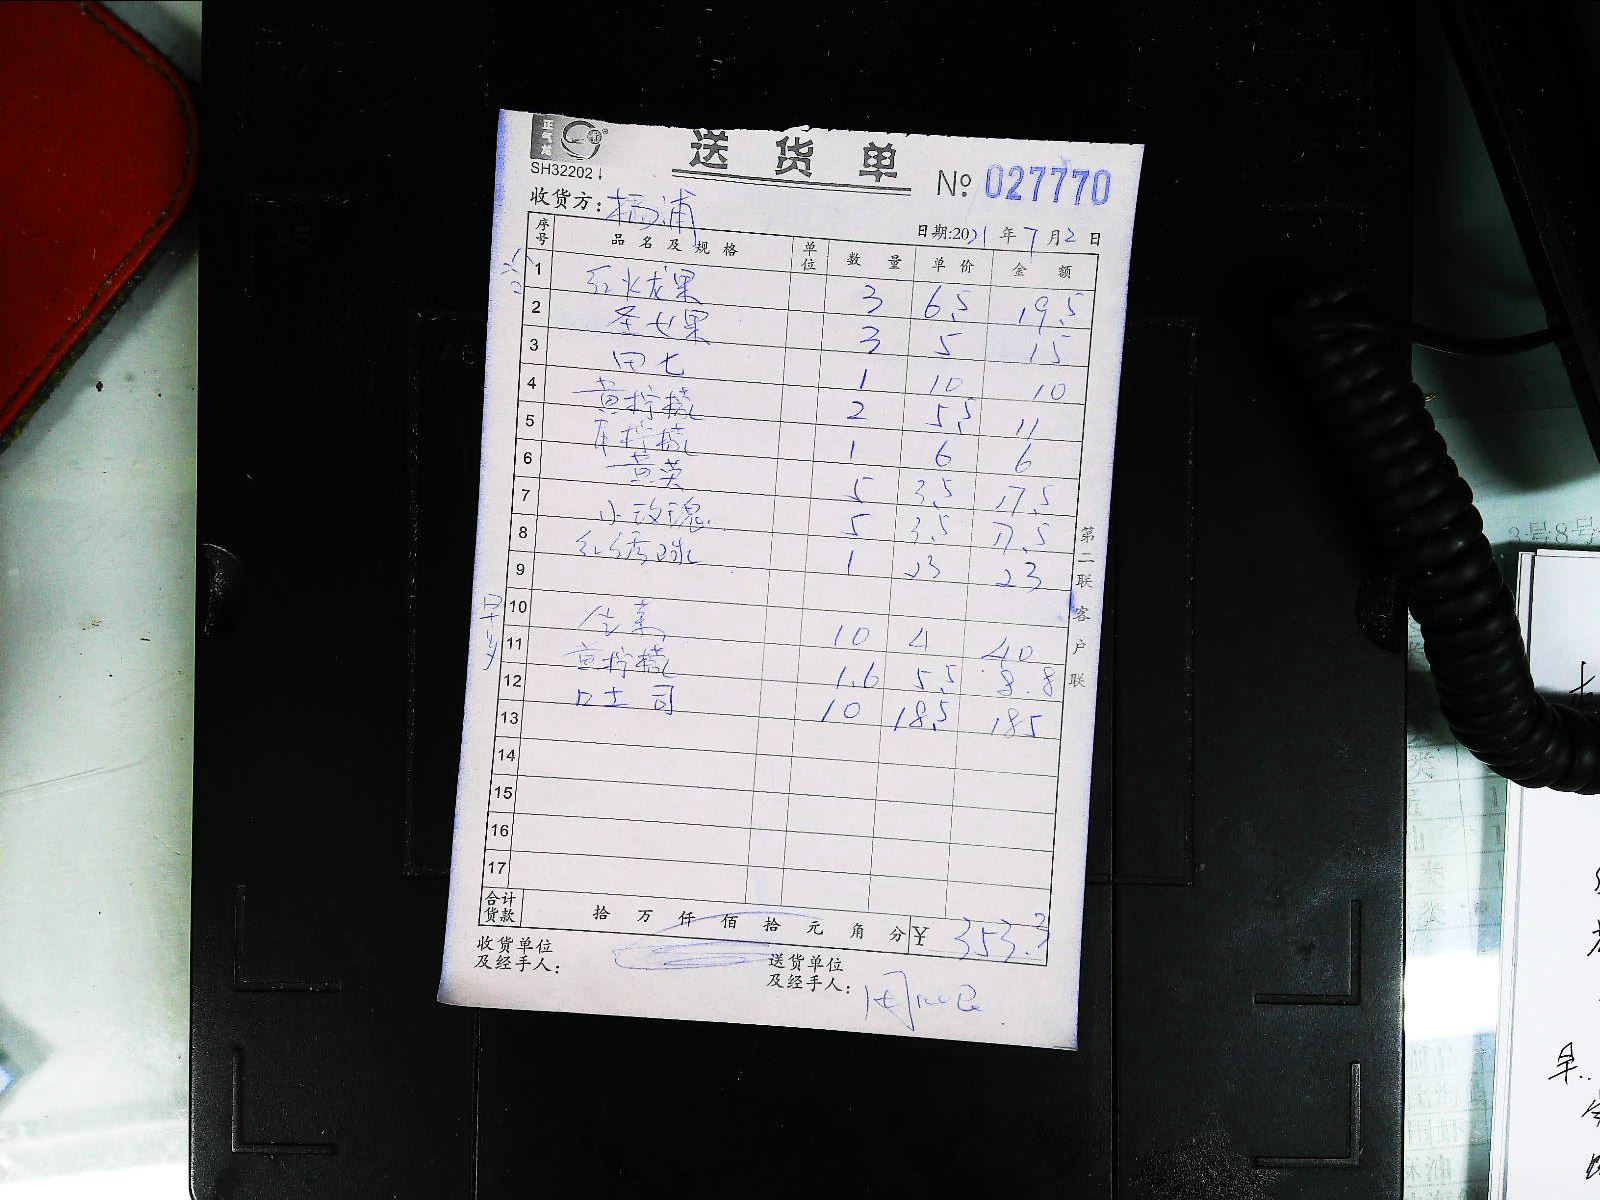 正气龙
送货单
SH32202
№ 027770
收货方：杨浦
日期:2021年7月2日
序号 品名及规格 单位 数量 单价 金额
1 红火龙果 3 6.5 19.5
2 圣女果 3 5 15
3 田七 1 10 10
4 黄柠檬 2 5.5 11
5 青柠檬 1 6 6
6 黄英 5 3.5 17.5
7 小玫瑰 5 3.5 17.5
8 红绣球 1 23 23
9
10 生菜 10 4 40
11 黄柠檬 1.6 5.5 8.8
12 口士司 10 18.5 185
13
14
15
16
17
早
第二联 客户联
合计货款 拾 万 仟 佰 拾 元 角 分 ¥ 353.3
收货单位及经手人：
送货单位及经手人：
早